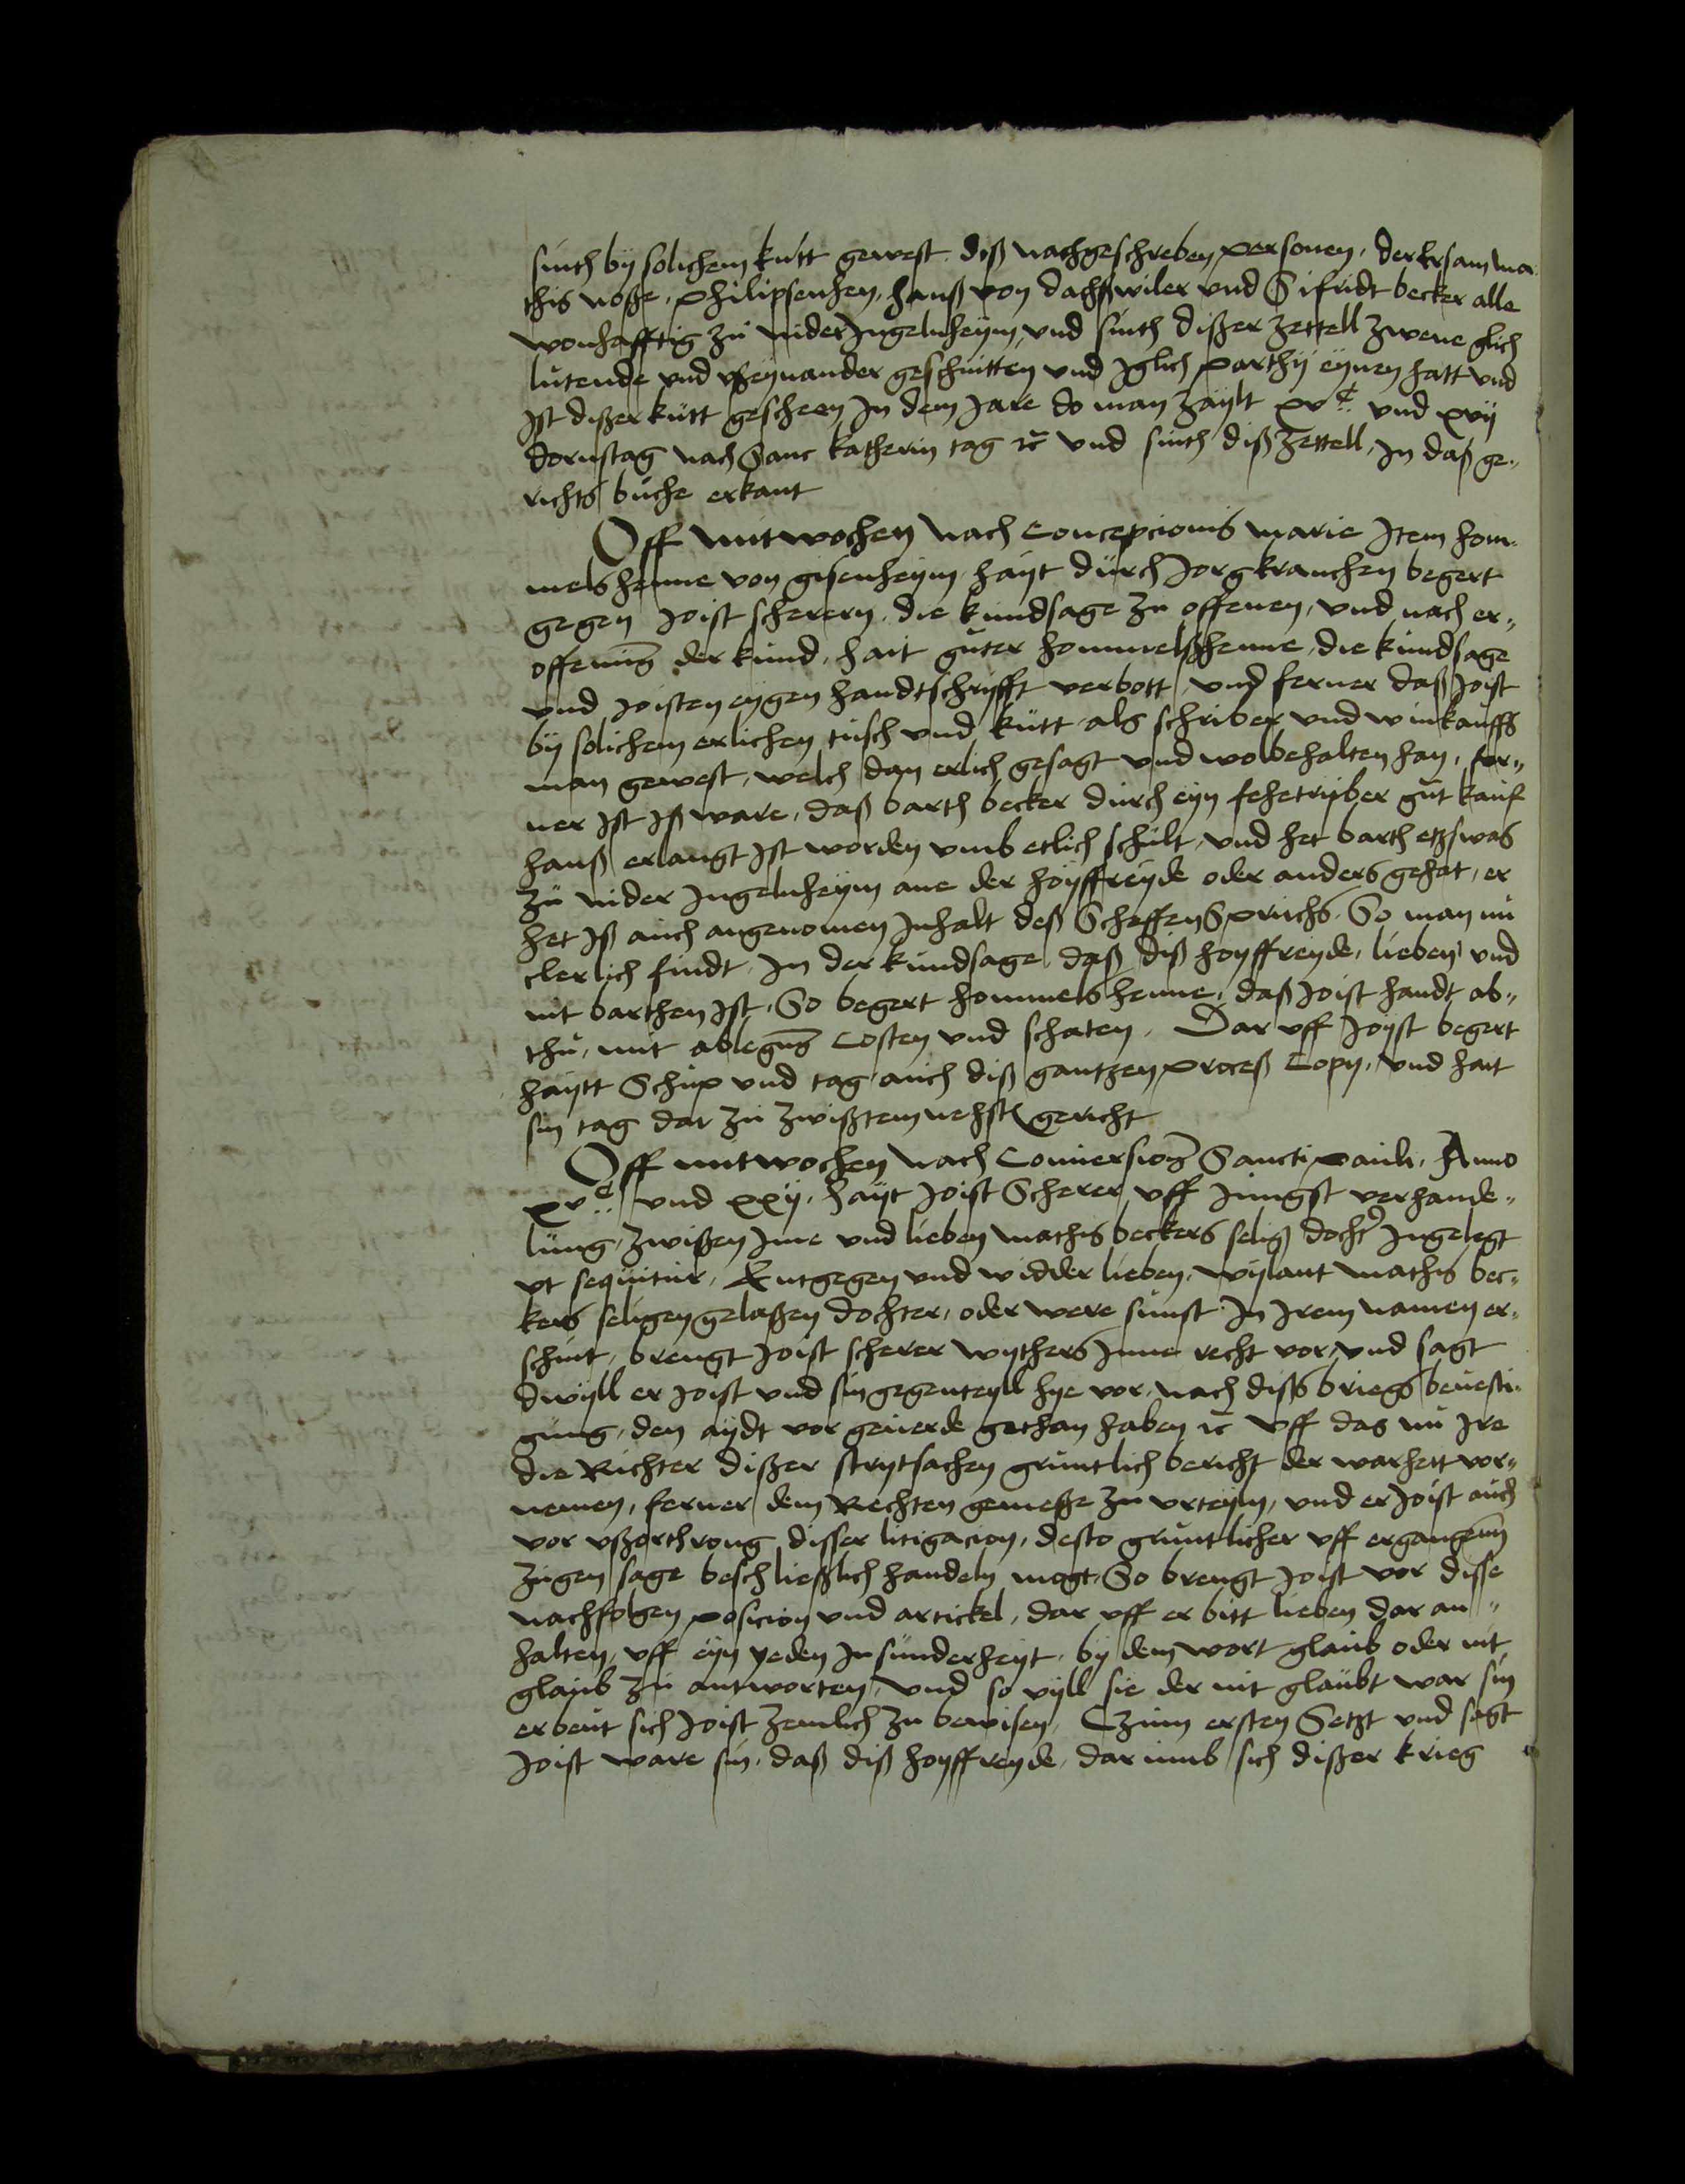 sinth by solichem kutt gewest diß nachgeschreben personen, der Ersam ma-
this noße, philipsenhen, hanß von dachßwiler vnd Sifridt becker alle
wonhafftig zu nider Jngelnheym, vnd sinth dißer zettell zwene glich
lutende vnd vßeynander geschnitten vnd Jglich parthy eynen hatt vnd
Jst dißer kutt gescheen Jn dem Jare do man zaylt xvᶜ vnd xvij
dornstag nach Sanc katherin tag ꝛc vnd sinth diß zettell, Jn daß ge-
richts buche erkant
Off mitwochen nach Concepcionis marie Jtem hom-
mels henne von gisenheym hayt durch Jorg kranchen begert
gegen Joist scherern die kundsage zu offenen, vnd nach er-
offenung der kund, hait guter hommelßhenne, die kundsage
vnd Joisten eygen handtschryfft verbott, vnd ferner daß Joist
by solichem erlichen tusch vnd kutt als schriber vnd winkauffs
man gewest, welch dan erlich gesagt vnd wolbehalten han, fer-
ner Jst Jß ware, daß barth becker durch eyn fehetryber gut kauf
hanß erlangt Jst worden vmb etlich schult, vnd het barth etzswas
zu nider Jngelnheym ane der hoyffreyde oder anders gehat, er
het Jß auch angenomen Jnhalt deß Scheffen Spruchs. So man nu
clerlich findt Jn der kundsage, daß diß hoyffreyde, lieben vnd
nit barthen Jst, So begert hommels henne, daß Joist handt ab-
thu, mit ablegung Costen vnd schaten. Dar vff Joyst begert
haytt Schup vnd tag auch diß gantzen proceß Copy, vnd hait
sin tag dar zu zwißtem nehsten gericht
Off mitwochen nach Conversionis Sancti pauli, Anno
xvᶜ vnd xxij, hayt Joist Scherer vff Jungst verhande-
lung zwißen Jme vnd lieben mathis beckers selig docht Jngelegt
vt sequitur, Entgegen vnd widder lieben, wylant mathis bec-
kers seligen gelaßen dochter, oder were sunst Jn Jrem namen er-
schint, brengt Joist scherer wythers Jnne recht vor, vnd sagt
dwyll er Joist vnd sin gegenteyll hye vor, nach diß kriegs bevesti-
gung, den aydt vor geverde gethan haben ꝛc vff das nu Jre
die Richter dißer strytsachen gruntlich bericht der warhett vor-
nemen, ferner dem Rechten gemeße zu vrteyln, vnd er Joist auch
vor vßorthrong disser litigacion, desto gruntlicher vff ergangenn
zugen sage beschließlich handeln mogt, So brengt Joist vor disse
nachfolgen posicion vnd artickel, dar vff er bitt lieben dar an-
halten, vff eyn yeden Jn sunderheyt, by dem wort glaub oder nit
glaub zu antworten, vnd so vyll sie der nit glaubt war sin
erbeut sich Joist zemlich zu bewisen, Czum ersten Setzt vnd sagt
Joist ware sin, daß diß hoyffreyde, dar umb sich dißer krieg